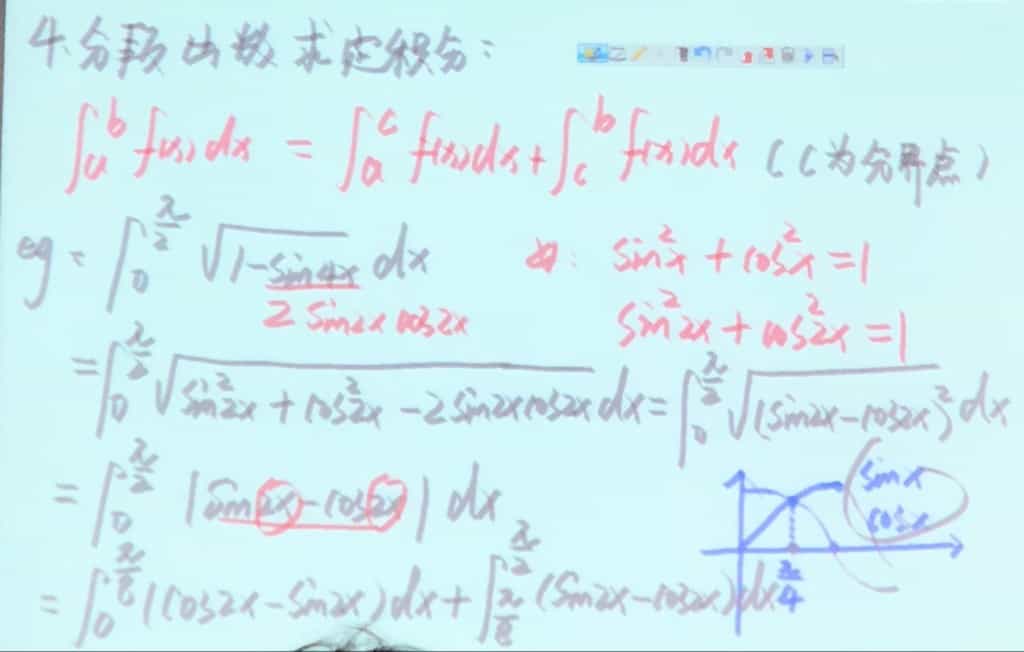 4、分段函数求定积分：
∫_a^b f(x)dx = ∫_a^c f(x)dx + ∫_c^b f(x)dx (C为分界点)
eg: ∫_0^{π/2} √(1-sin4x) dx
☆: sin²x + cos²x = 1
2sin2xcos2x
sin²2x + cos²2x = 1
= ∫_0^{π/2} √(sin²2x + cos²2x - 2sin2xcos2x) dx = ∫_0^{π/2} √((sin2x-cos2x)²) dx
= ∫_0^{π/2} |sin2x-cos2x| dx
sinx
cosx
π/4
= ∫_0^{π/8} (cos2x-sin2x)dx + ∫_{π/8}^{π/2} (sin2x-cos2x)dx